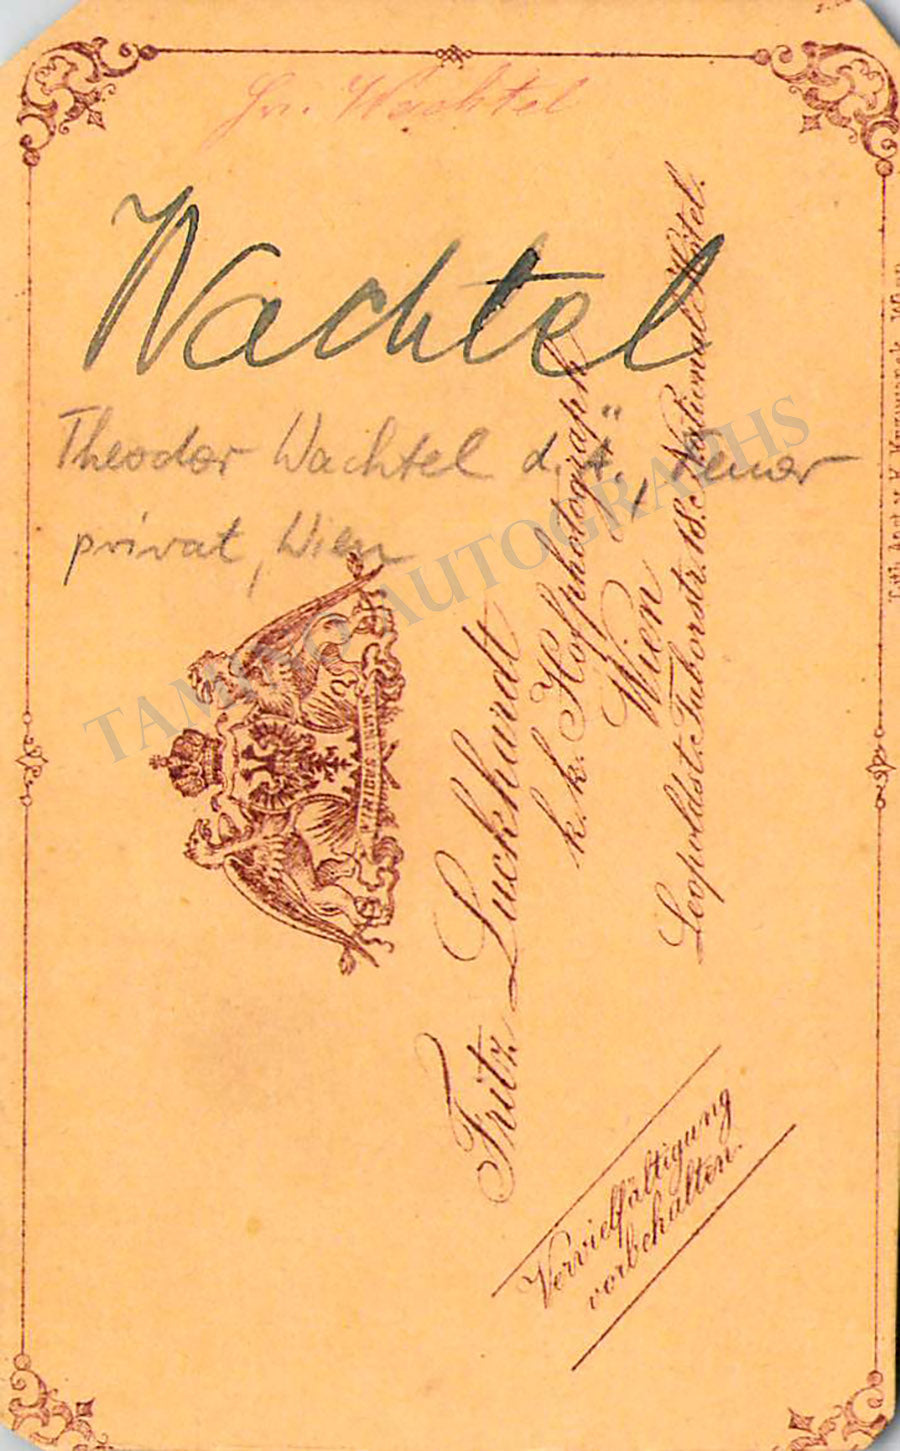 Hr. Wachtel
Wachtel
Theodor Wachtel d. Ä., Tenor
privat, Wien
TAMINO AUTOGRAPHS
VIRIBUS UNITIS
Fritz Luckhardt
k. k. Hofphotograph
Wien
Leopoldst. Taborstr. 18. National-Hôtel.
Vervielfältigung
vorbehalten.